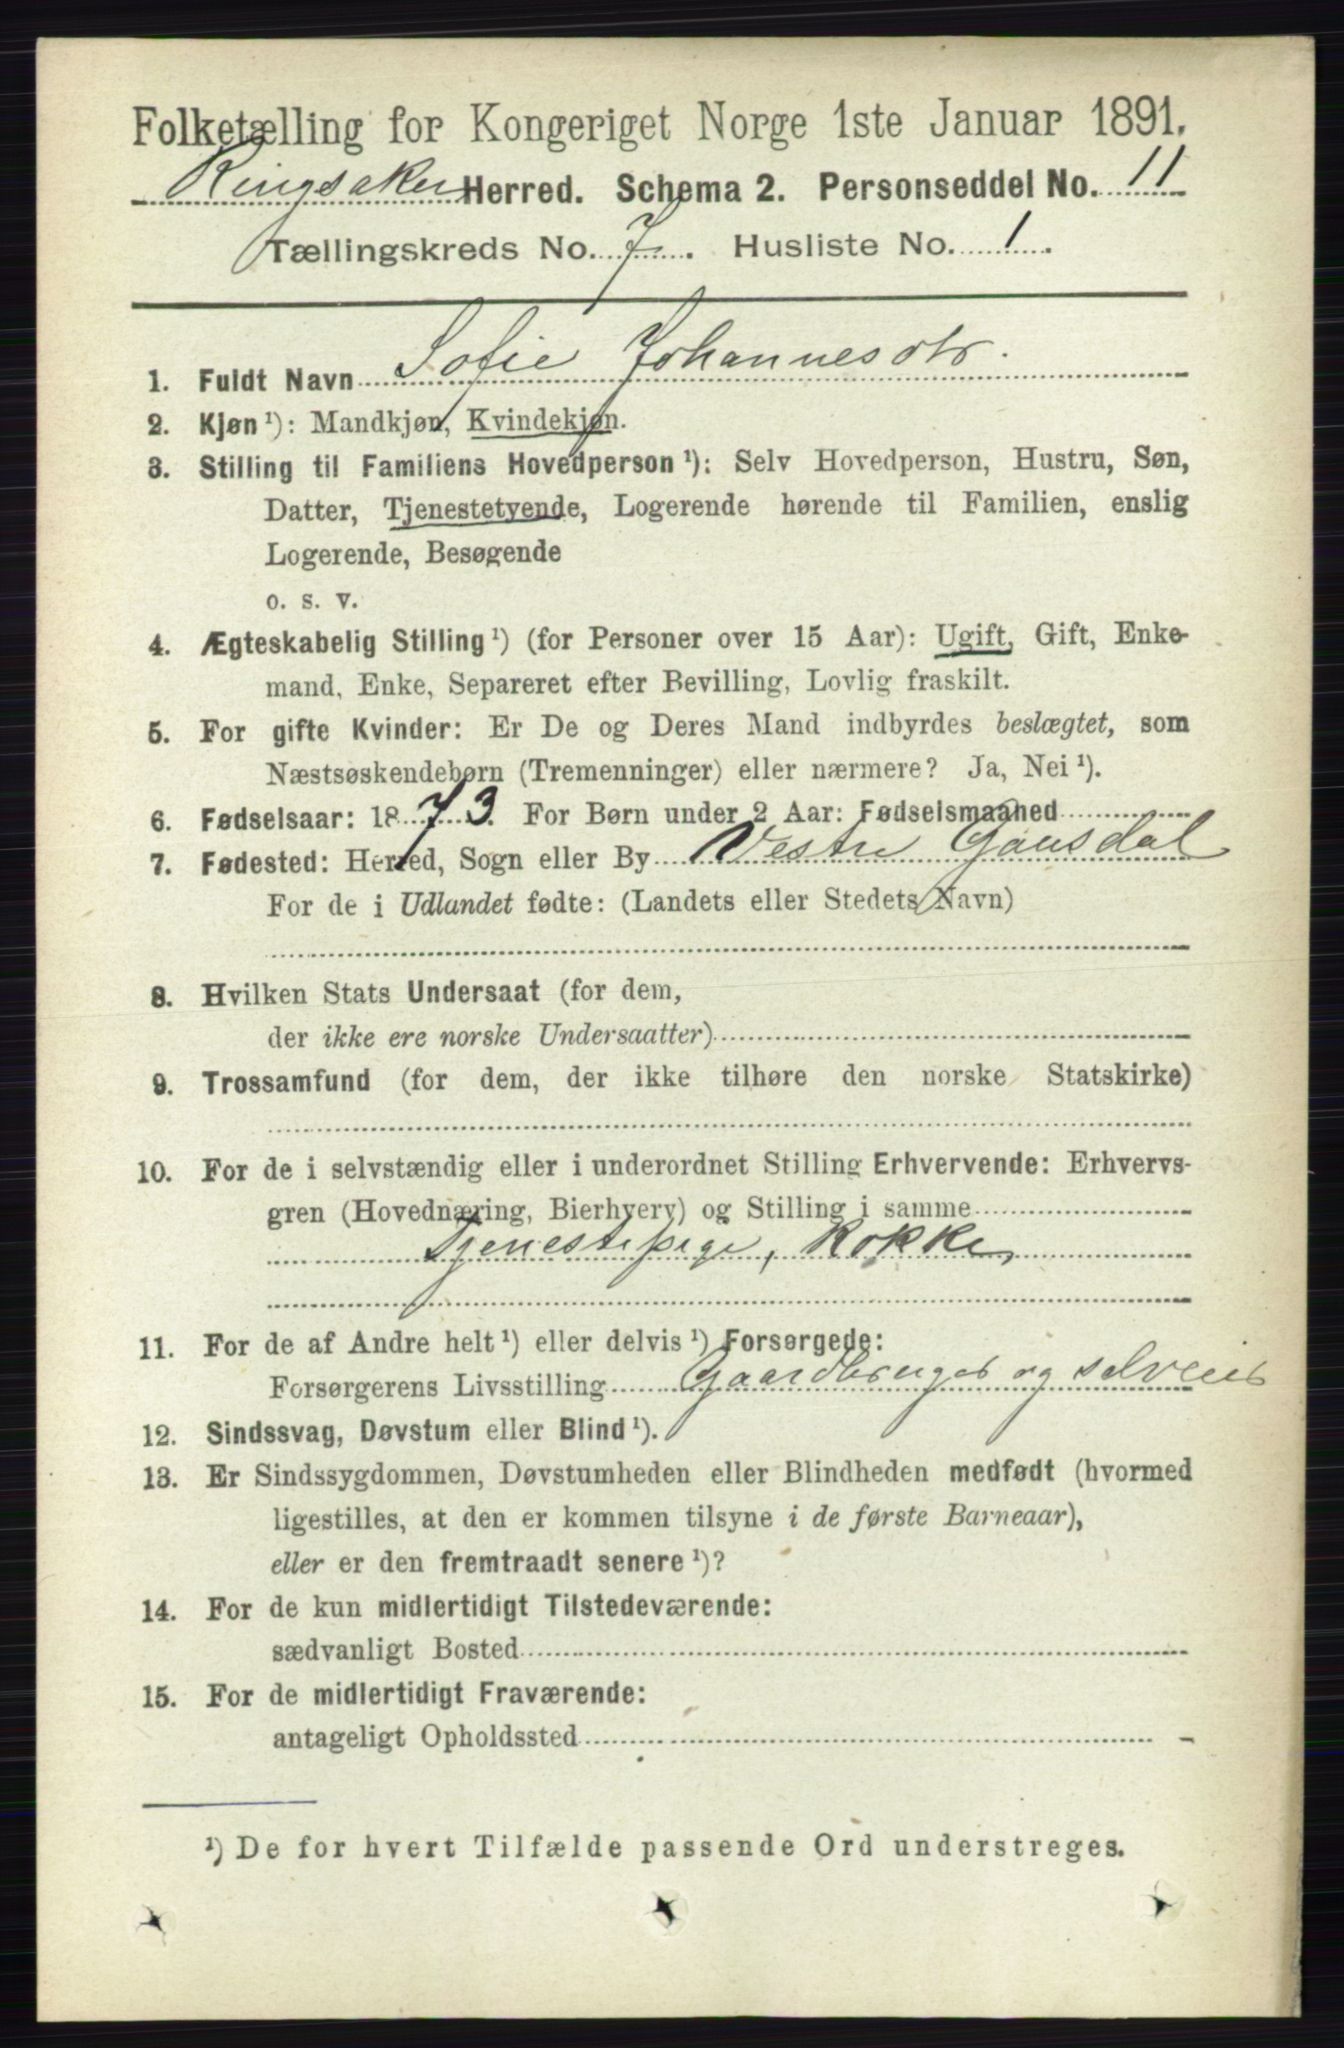 Folketælling for Kongeriget Norge 1ste Januar 1891.
Ringsaker Herred. Schema 2. Personseddel No. 11
Tællingskreds No. 7. Husliste No. 1.
1. Fuldt Navn Sofie Johannesdtr.
2. Kjøn ¹): Mandkjøn, Kvindekjøn.
3. Stilling til Familiens Hovedperson ¹): Selv Hovedperson, Hustru, Søn,
Datter, Tjenestetyende, Logerende hørende til Familien, enslig
Logerende, Besøgende
o. s. v.
4. Ægteskabelig Stilling ¹) (for Personer over 15 Aar): Ugift, Gift, Enke-
mand, Enke, Separeret efter Bevilling, Lovlig fraskilt.
5. For gifte Kvinder: Er De og Deres Mand indbyrdes beslægtet, som
Næstsøskendebørn (Tremenninger) eller nærmere? Ja, Nei ¹).
6. Fødselsaar: 1873. For Børn under 2 Aar: Fødselsmaaned
7. Fødested: Herred, Sogn eller By Vestre Gausdal
For de i Udlandet fødte: (Landets eller Stedets Navn)
8. Hvilken Stats Undersaat (for dem,
der ikke ere norske Undersaatter)
9. Trossamfund (for dem, der ikke tilhøre den norske Statskirke)
10. For de i selvstændig eller i underordnet Stilling Erhvervende: Erhvervs-
gren (Hovednæring, Bierhverv) og Stilling i samme
Tjenestepige, Kokke,
11. For de af Andre helt ¹) eller delvis ¹) Forsørgede:
Forsørgerens Livsstilling Gaardbruger og selveier
12. Sindssvag, Døvstum eller Blind ¹).
13. Er Sindssygdommen, Døvstumheden eller Blindheden medfødt (hvormed
ligestilles, at den er kommen tilsyne i de første Barneaar),
eller er den fremtraadt senere ¹)?
14. For de kun midlertidigt Tilstedeværende:
sædvanligt Bosted
15. For de midlertidigt Fraværende:
antageligt Opholdssted
¹) De for hvert Tilfælde passende Ord understreges.